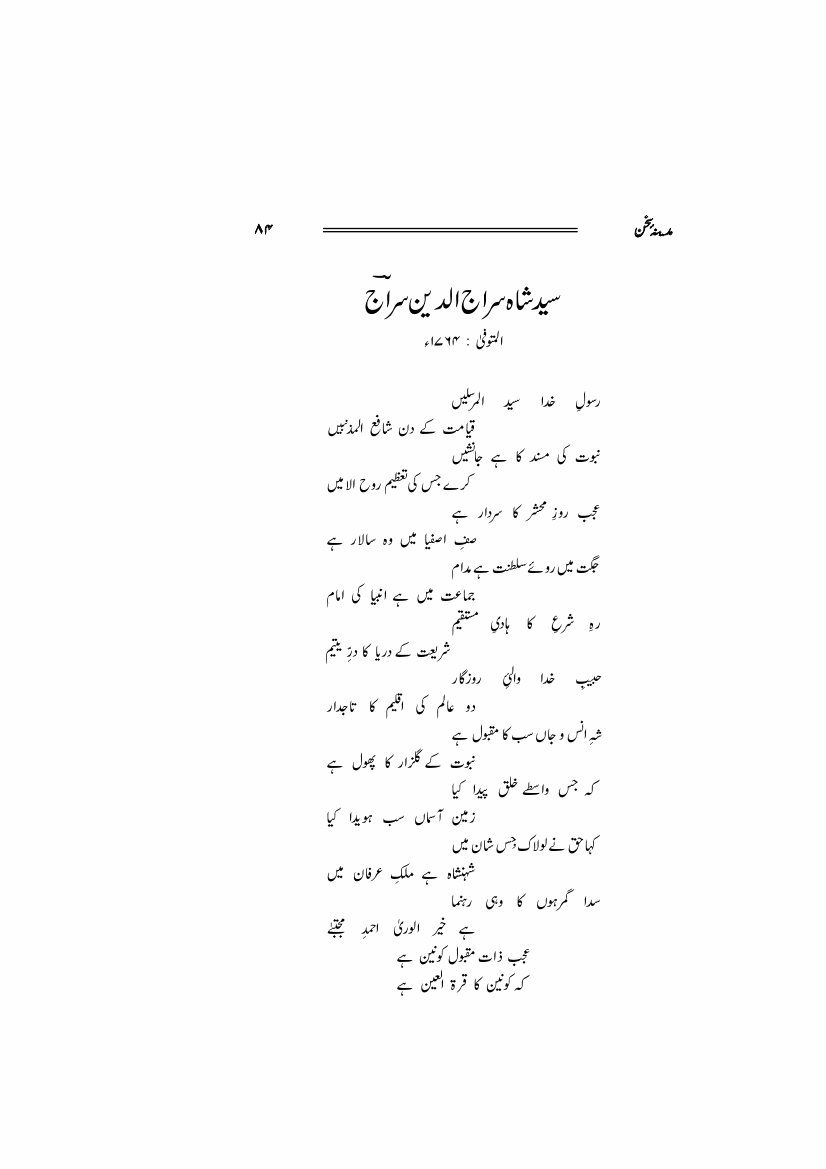 مدینۂ سخن ۸۴
سید شاہ سراج الدین سراج
المتوفیٰ : ۱۷۶۴ء
رسولِ خدا سید المرسلیں
قیامت کے دن شافع المذنبیں
نبوت کی مسند کا ہے جانشیں
کرے جس کی تعظیم روح الامیں
عجب روزِ محشر کا سردار ہے
صفِ اصفیا میں وہ سالار ہے
جگت میں روئے سلطنت ہے مدام
جماعت میں ہے انبیا کی امام
رہِ شرعِ کا ہادیِ مستقیم
شریعت کے دریا کا درِّ یتیم
حبیبِ خدا والیٔ روزگار
دو عالم کی اقلیم کا تاجدار
شہِ انس و جاں سب کا مقبول ہے
نبوت کے گلزار کا پھول ہے
کہ جس واسطے خلق پیدا کیا
زمین آسماں سب ہویدا کیا
کہا حق نے لولاک جس شان میں
شہنشاہ ہے ملکِ عرفان میں
سدا گمرہوں کا وہی رہنما
ہے خیر الوریٰ احمدِ مجتبےٰ
عجب ذات مقبول کونین ہے
کہ کونین کا قرۃ العین ہے